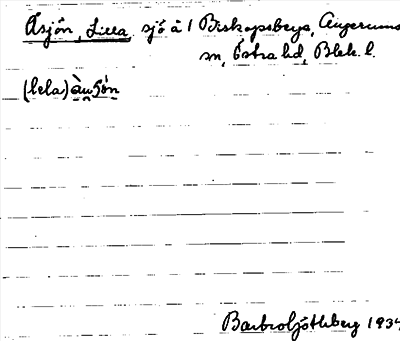 Åsjön, Lilla sjö å 1 Biskopsberg, Augerums
sn, Östra hd, Blek. l.
(lela) àu
Barbro Göthberg 1934